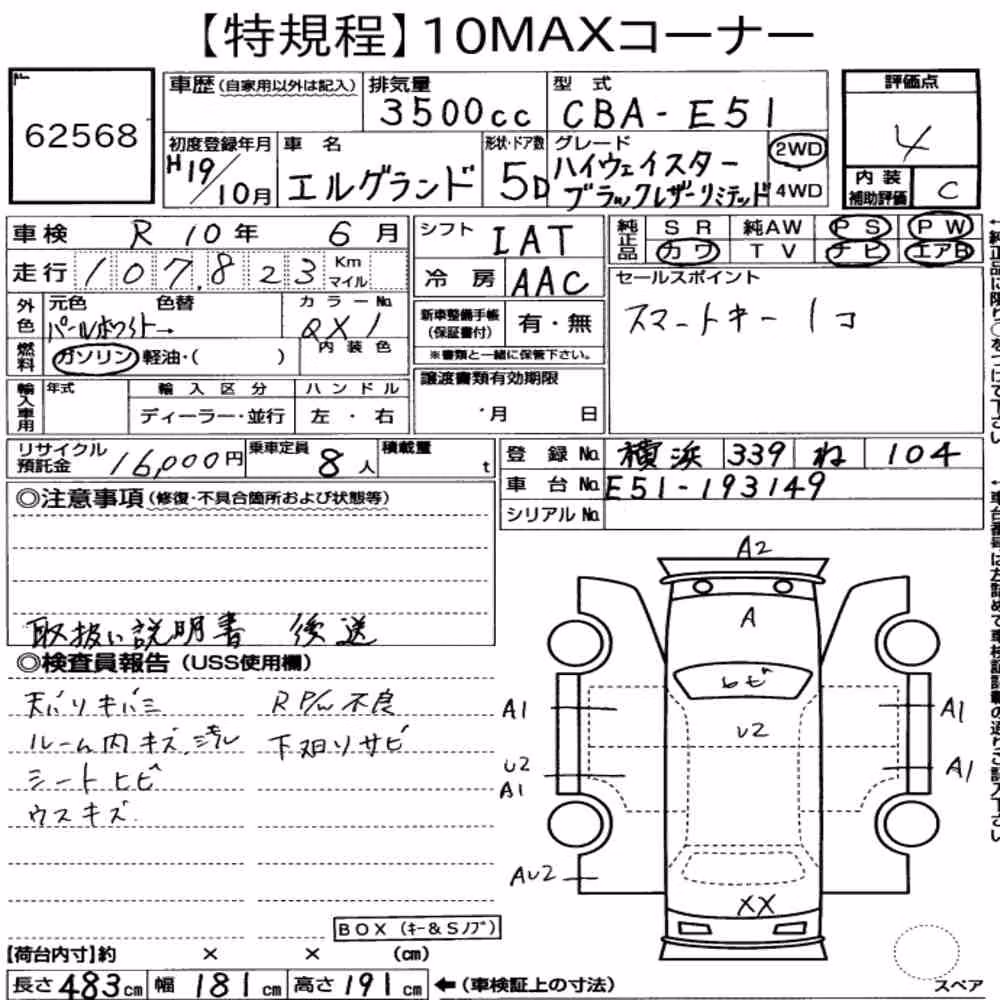 【特規程】10MAXコーナー
62568
車歴(自家用以外は記入)
排気量
3500cc
型式
CBA-E51
評価点
4
内装補助評価
C
初度登録年月
H19/10月
車名
エルグランド
形状・ドア数
5D
グレード
ハイウェイスター
ブラックレザーリミテッド
2WD
4WD
車検 R 10年 6月
走行 107,823 Km マイル
外色 元色 色替
パールホワイト→
カラーNo.
QX1
内装色
燃料 ガソリン 軽油・( )
輸入車用 年式
輸入区分
ディーラー・並行
ハンドル
左・右
シフト IAT
冷房 AAC
新車整備手帳(保証書付) 有・無
※書類と一緒に保管下さい。
譲渡書類有効期限
・月 日
純正品 SR 純AW PS PW
カワ TV ナビ エアB
セールスポイント
スマートキー1コ
リサイクル預託金 16,000円
乗車定員 8人
積載量 t
登録No. 横浜 339 ね 104
車台No. E51-193149
シリアルNo.
◎注意事項(修復・不具合箇所および状態等)
取扱い説明書 後送
◎検査員報告(USS使用欄)
天バリキバミ
ルーム内キズ、汚レ
シートヒビ
ウスキズ
R P/w 不良
下廻リサビ
BOX(キー&Sノブ)
A2
A
ヒビ
U2
A1
A1
U2
A1
A1
AU2
XX
スペア
【荷台内寸】約 × × (cm)
長さ483cm 幅181cm 高さ191cm
←(車検証上の寸法)
←純正品に限り○をつけて下さい